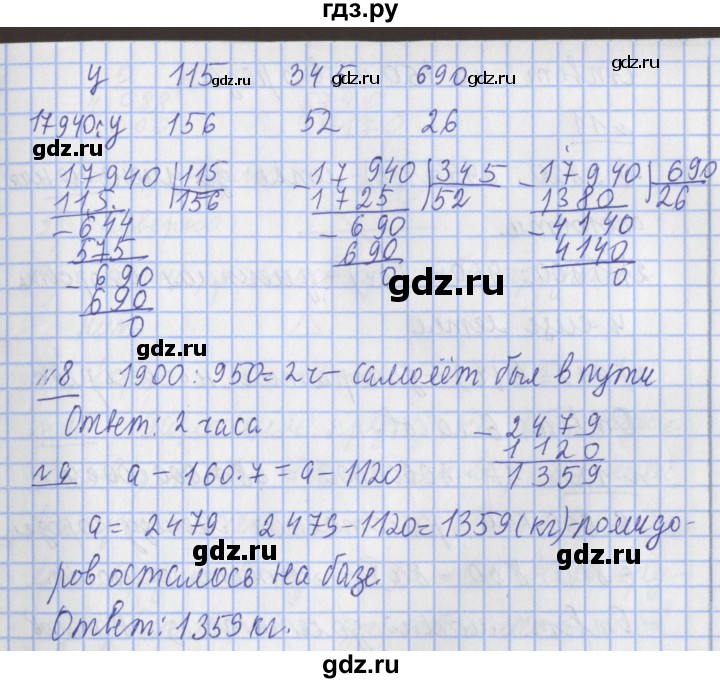 гдз.ру
у 115 345 690
gdz.ru gdz.ru gdz.ru
17940:у 156 52 26
gdz.ru
17940 115 - 17 940 345 - 17940 690
115 156 1725 52 1380 26
- 644 - 690 - 4140
575 690 4140
- 690 0 0
690
0
gdz.ru gdz.ru gdz.ru
№8 1900 : 950 = 2 ч - самолёт был в пути
Ответ: 2 часа
- 2479
1120
1359
№9 а - 160 . 7 = а - 1120
gdz.ru
а = 2479 2479 - 1120 = 1359 (кг) - помидо-
gdz.ru gdz.ru
ров осталось на базе.
Ответ: 1359 кг.
gdz.ru
gdz.ru